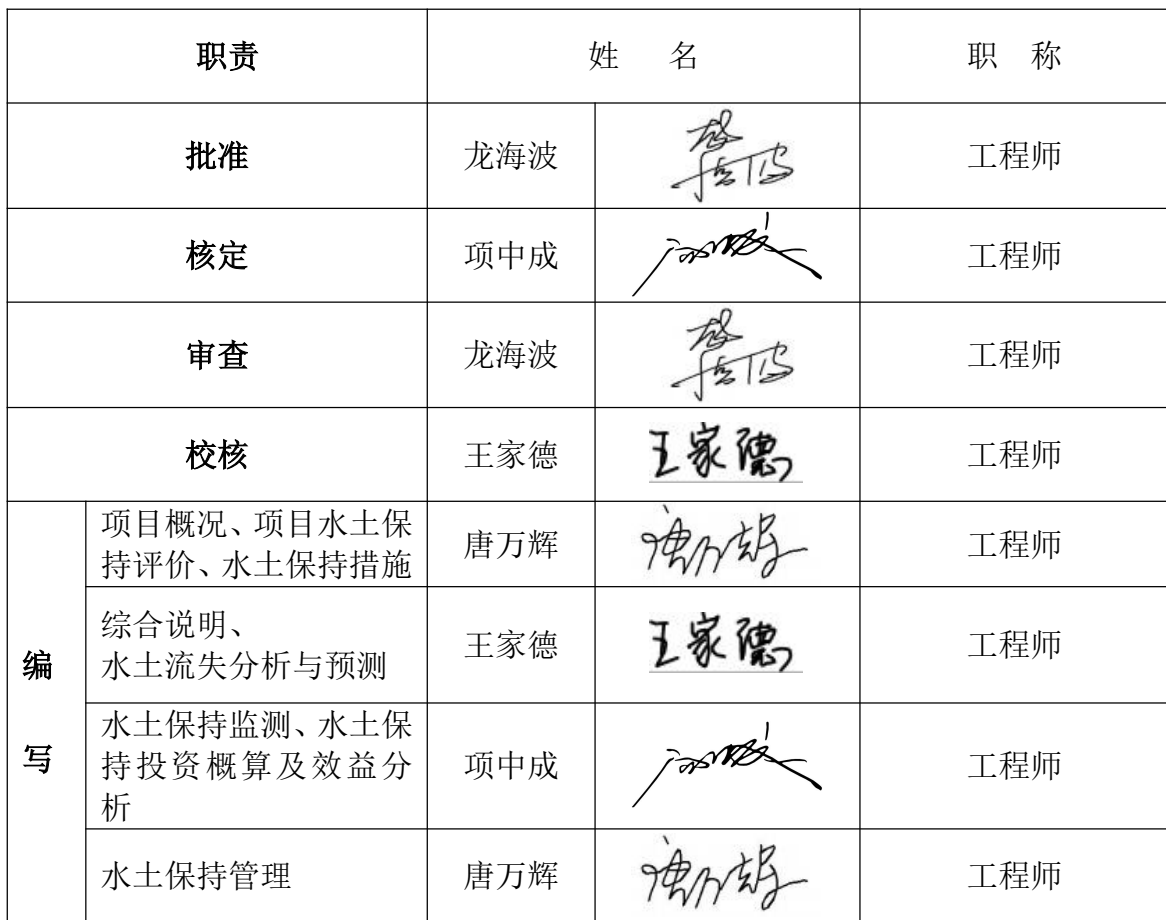 职责 姓 名 职 称
批准 龙海波 工程师
核定 项中成 工程师
审查 龙海波 工程师
校核 王家德 王家德 工程师
编
写
项目概况、项目水土保
持评价、水土保持措施
唐万辉 唐万辉 工程师
综合说明、
水土流失分析与预测
王家德 王家德 工程师
水土保持监测、水土保
持投资概算及效益分
析
项中成 工程师
水土保持管理 唐万辉 唐万辉 工程师